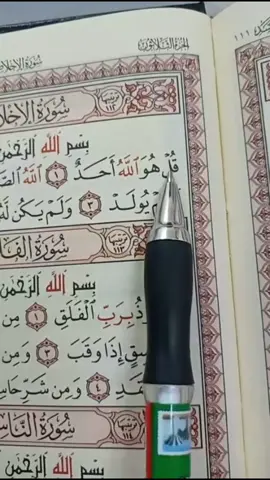 الجزء الثلاثون
سورة الإخلا
سُورَةُ الإِخْلَا
بِسْمِ اللَّهِ الرَّحْمَٰنِ
قُلْ هُوَ اللَّهُ أَحَدٌ ١ اللَّهُ الصَّ
يُولَدْ ٣ وَلَمْ يَكُن لَّهُ
سُورَةُ الفَلَ
بِسْمِ اللَّهِ الرَّحْمَٰنِ
ذُ بِرَبِّ الْفَلَقِ ١ مِن
سِقٍ إِذَا وَقَبَ ٣ وَمِن
قَدِ ٤ وَمِن شَرِّ حَاسِ
سُورَةُ النَّاسِ
بِسْمِ اللَّهِ الرَّحْمَٰنِ